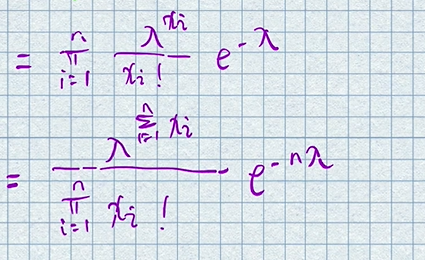 = \prod_{i=1}^{n} \frac{\lambda^{x_i}}{x_i!} e^{-\lambda}
= \frac{\lambda^{\sum_{i=1}^{n} x_i}}{\prod_{i=1}^{n} x_i!} e^{-n\lambda}